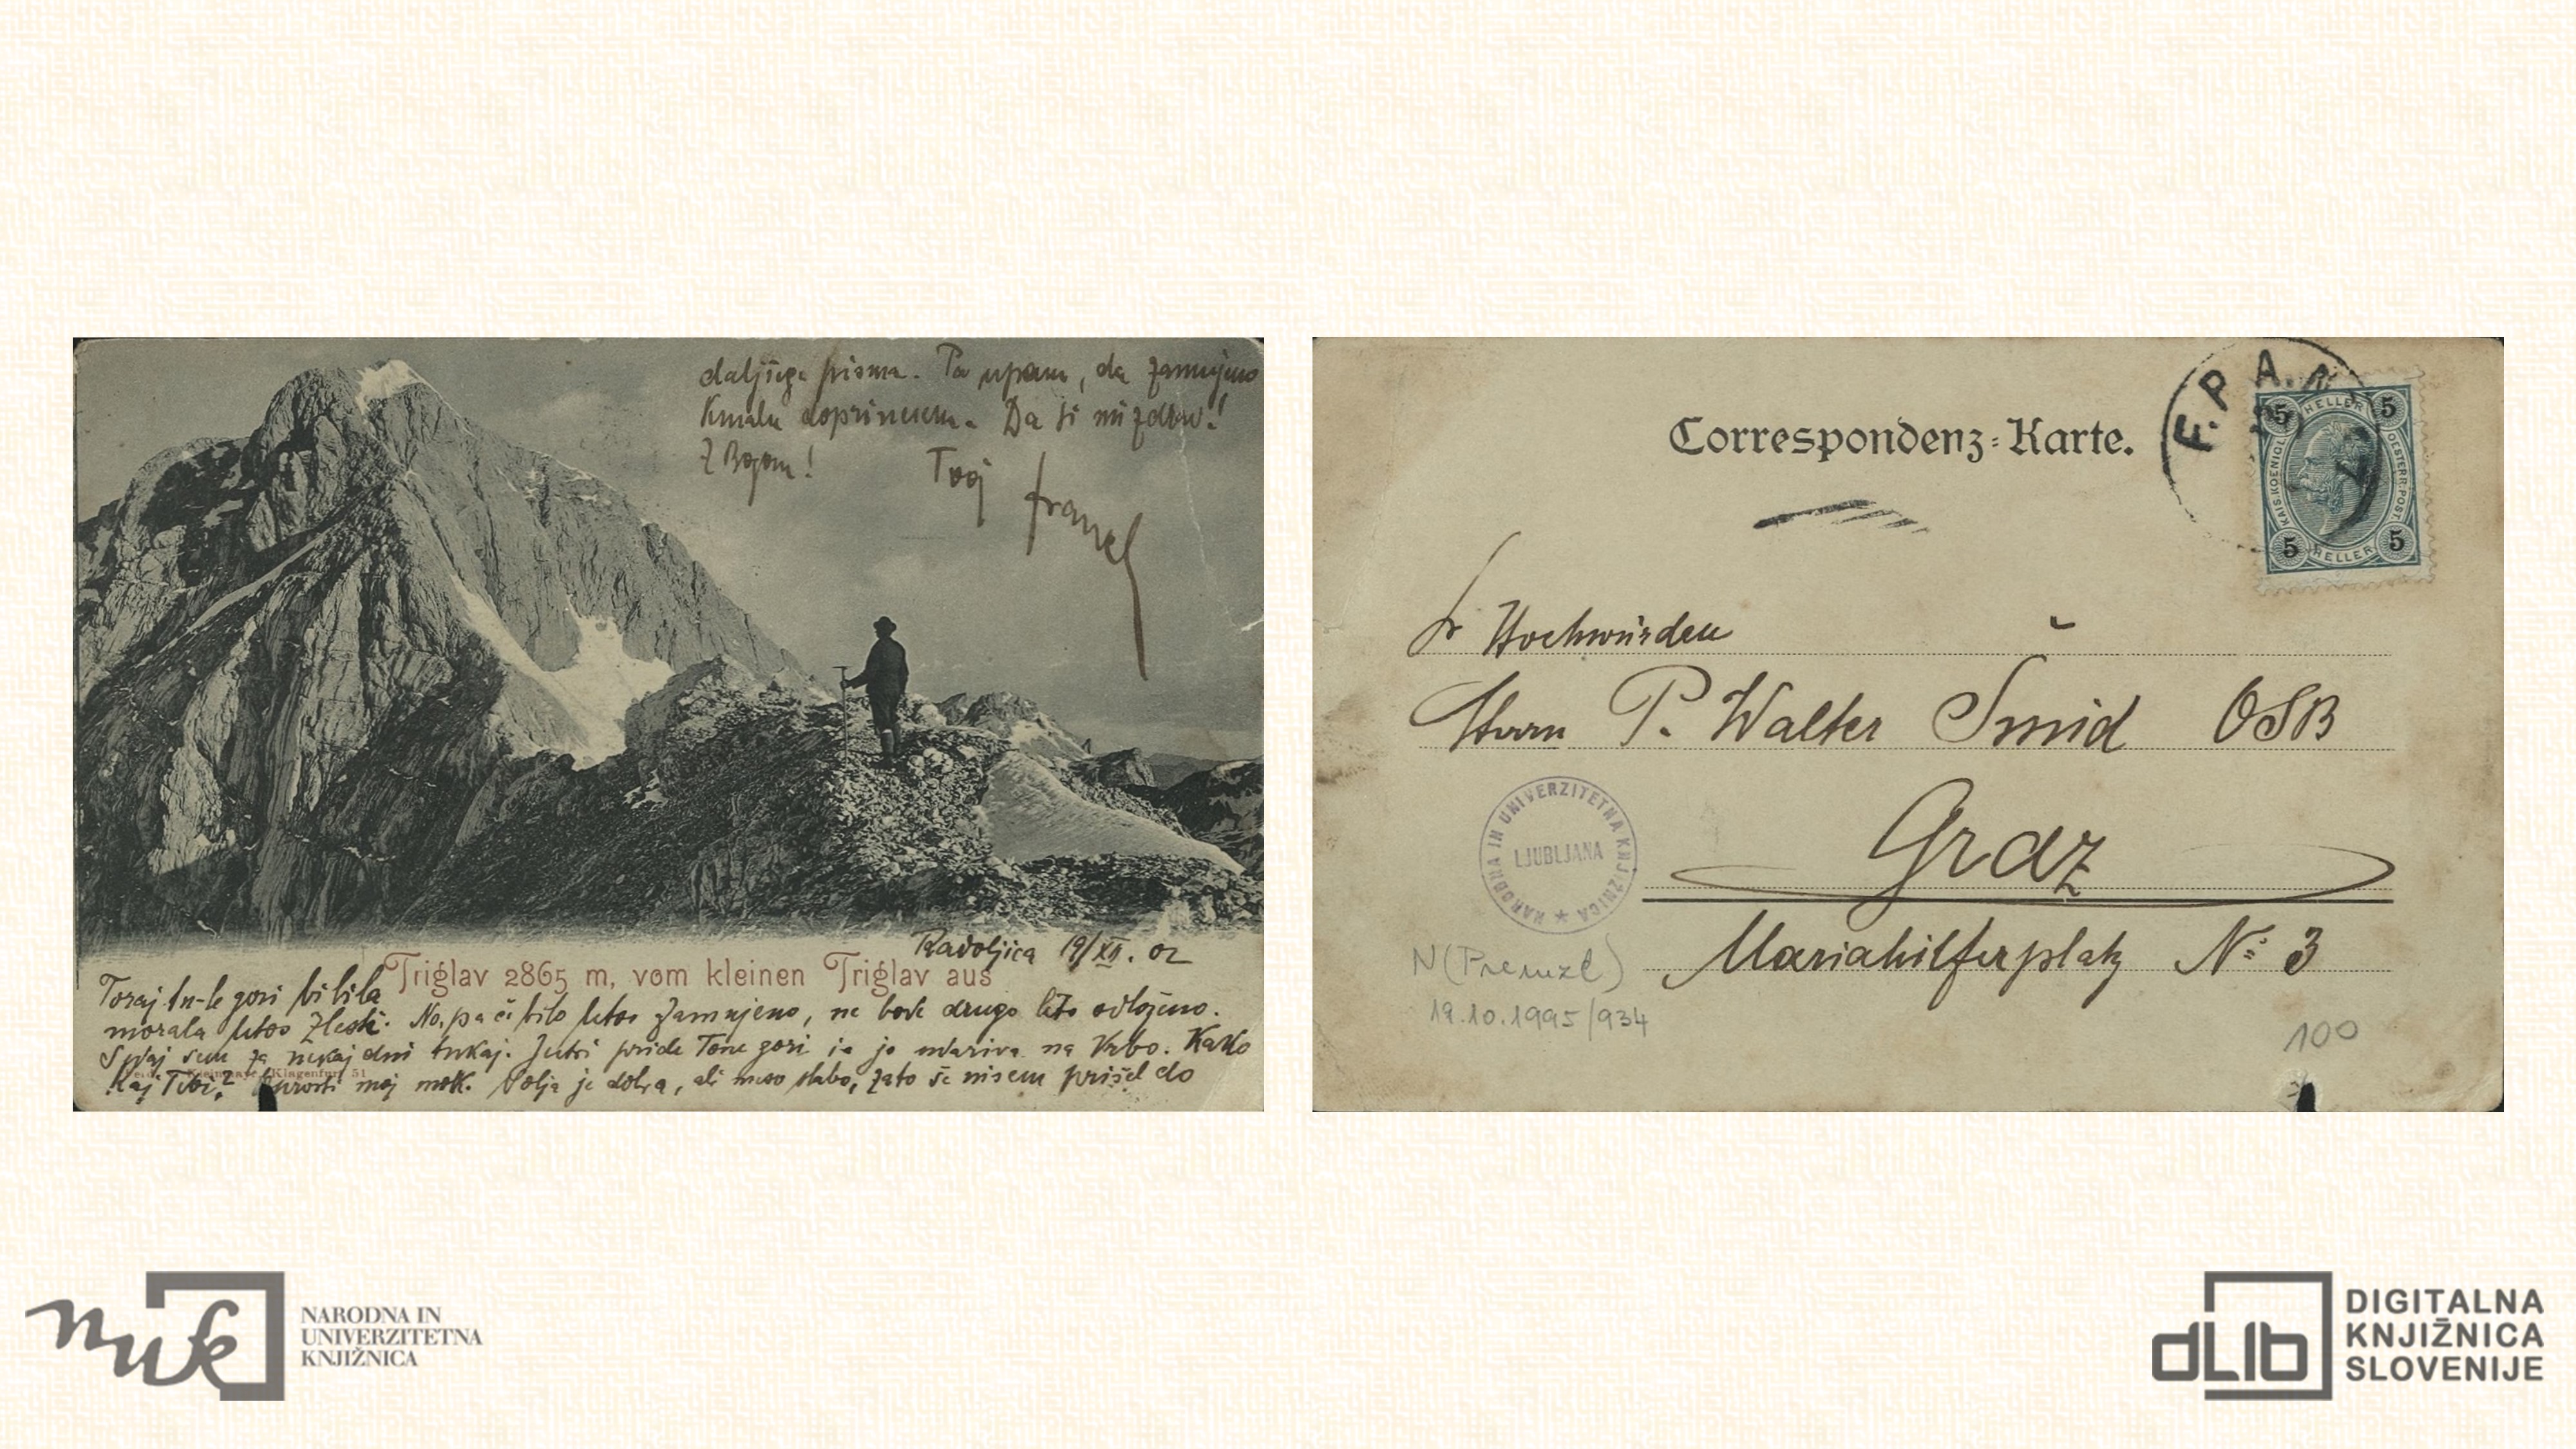 daljšega pisma. Pa upam, da zamujeno
kmalu doprinesem. Da si mi zdrav!
Z Bogom! Tvoj
Radoljica 19/XII. 02
Triglav 2865 m, vom kleinen Triglav aus
Toraj tu-le gori bi bila
morala letos . No, pa če bilo letos zamujeno, ne bode drugo leto odloženo.
sem za nekaj dni tukaj. Jutri pride Tone gori in jo udariva na Vrbo. Kako
kaj Tebi? moj molk. Volja je dobra, ali meso slabo, zato še nisem prišel do
Kleinmayr, Klagenfurt 51
Correspondenz-Karte.
F. P. A. N
5 HELLER 5
KAIS. KOENIGL. OESTERR. POST.
5 HELLER 5
Sr Hochwürden
Herrn P. Walter Šmid OSB
Graz
Mariahilferplatz No 3
NARODNA IN UNIVERZITETNA KNJIŽNICA
LJUBLJANA
N (Prenzl)
19.10.1995/934
100
nuk
NARODNA IN
UNIVERZITETNA
KNJIŽNICA
dLib
DIGITALNA
KNJIŽNICA
SLOVENIJE